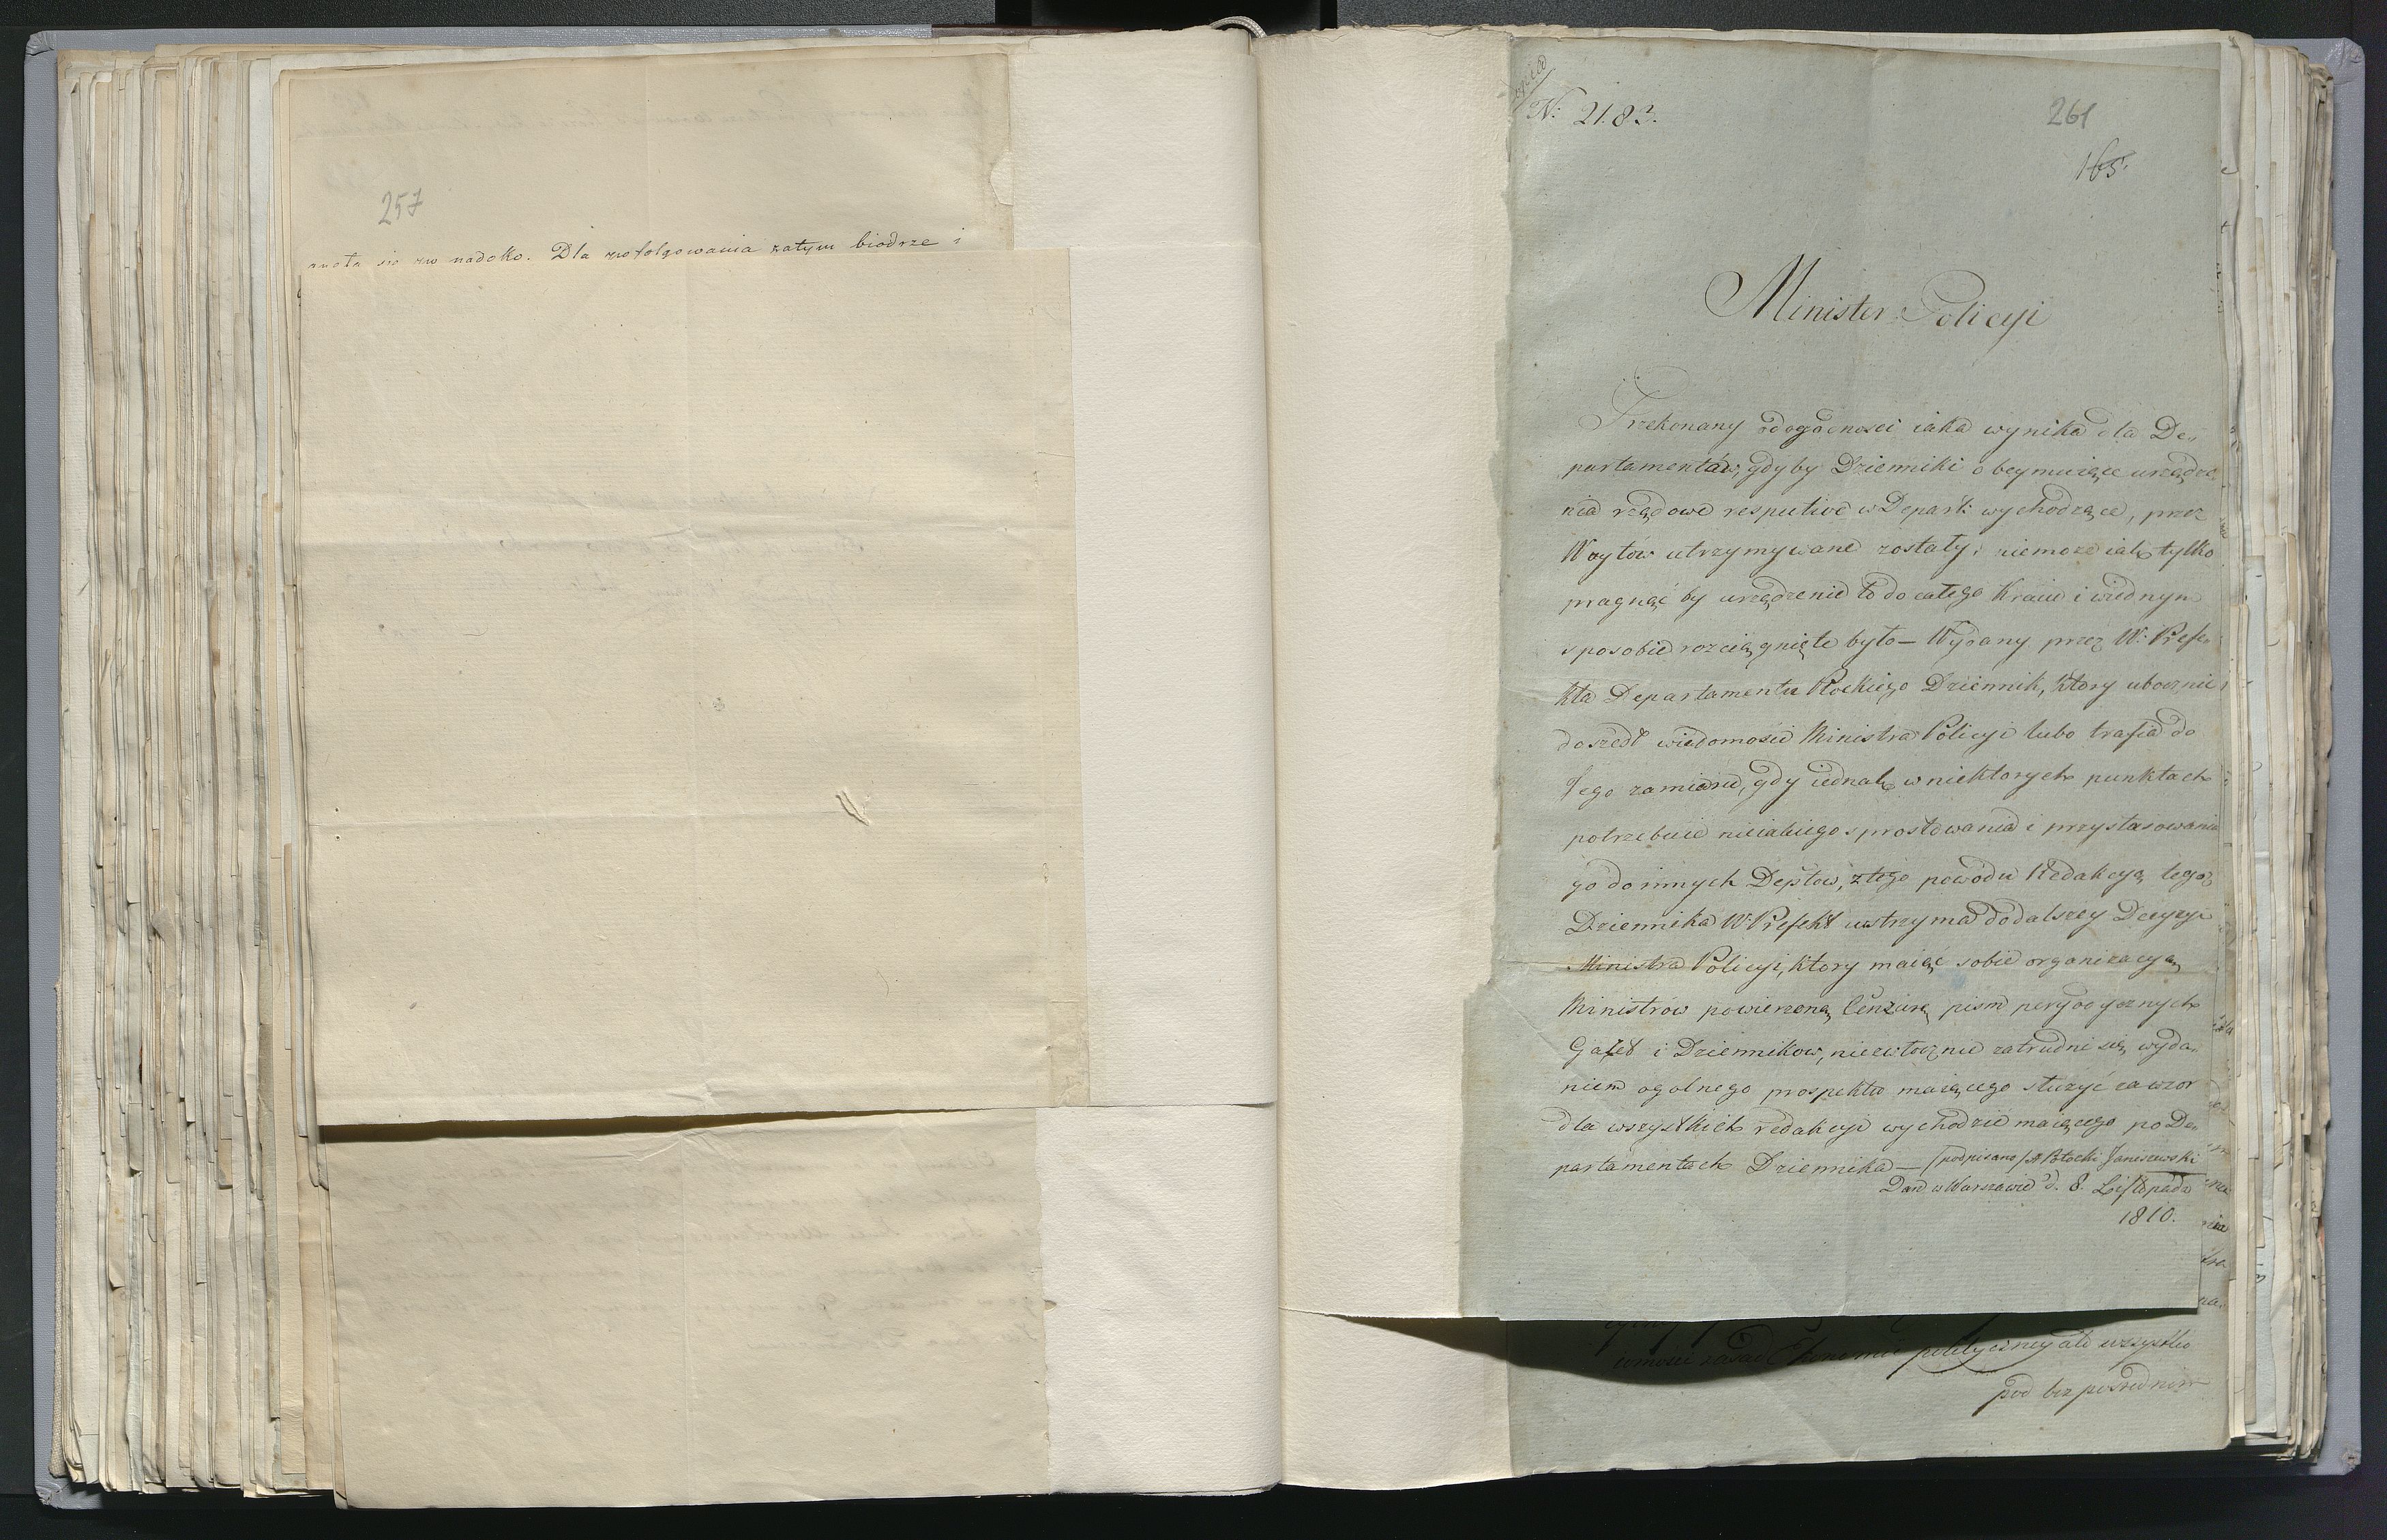 257
się nadoko. Dla zatym biodrze i
N: 2183.
261
165.
Minister Policyi
Przekonany o dogodnosci iaka wynika dla De-
partamentów, gdyby Dzienniki obeymuiące urządze
nia rządowe respective w Depart: wychodzące, przez
Woytów utrzymywane zostały, niemoże iak tylko
pragnąć by urządzenie to do całego Kraiu i wiednym
sposobie rozciągnięte było — Wydany przez W: Prefe-
kta Departamentu Płockiego Dziennik, ktory ubocznie
doszedł wiedomości Ministra Policyi lubo trafia do
Jego zamiaru, gdy iednak w niektorych punktach
potrzebuie nieiakiego sprostowania i przystosowania
go do innych Deptow, z tego powodu Redakcyą tegoż
Dziennika W. Prefekt wstrzyma do dalszey Decyzyi
Ministra Policyi, ktory maiąc sobie organizacyą
Ministrów powierzoną Cenzurę pism peryodycznych
Gazet i Dziennikow, niezwłocznie zatrudni się wyda-
niem ogolnego prospektu maiącego służyć za wzor
dla wszystkich redakcyi wychodzić maiącego po De-
partamentach Dziennika — /podpisano/ A Potocki Janiszewski
Dan w Warszawie d. 8. Listopada
1810.
politycznej ale wszystko
pod bezpośrednim